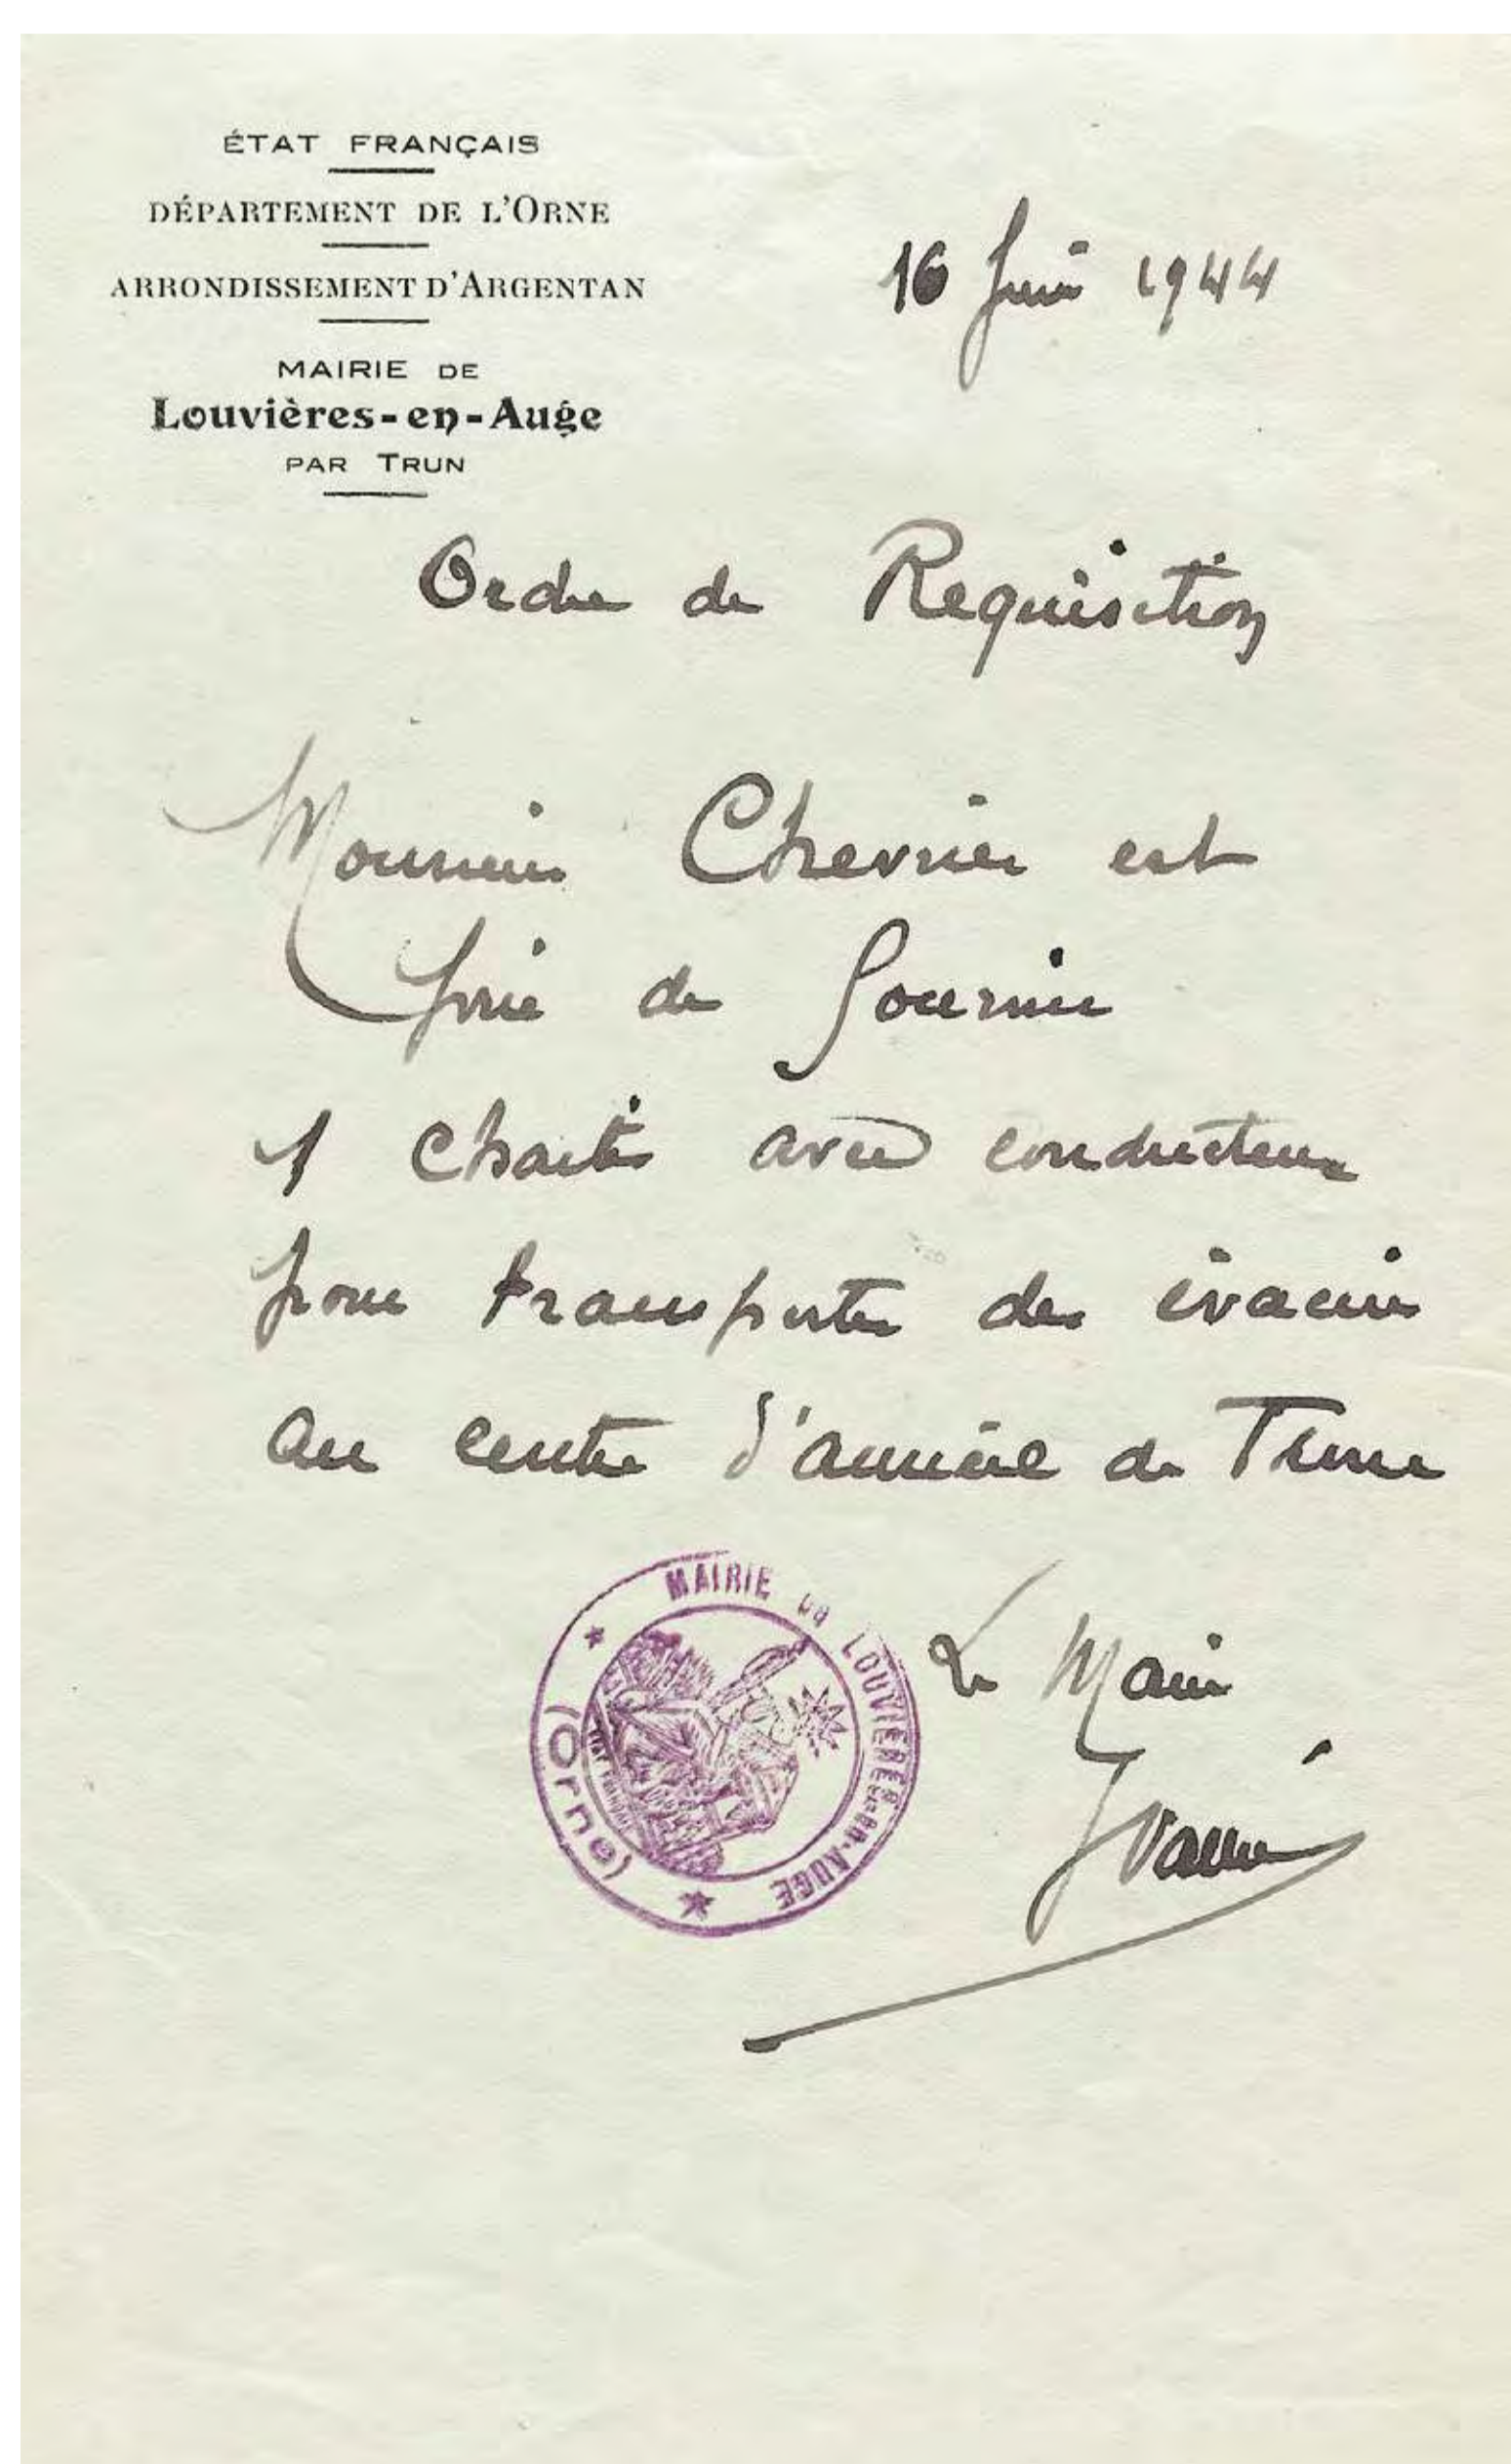 ÉTAT FRANÇAIS
DÉPARTEMENT DE L'ORNE
ARRONDISSEMENT D'ARGENTAN
MAIRIE DE
Louvières-en-Auge
PAR TRUN
16 Juin 1944
Ordre de Requisition
Monsieur Chevrier est
prié de fournir
1 charte avec conducteur
pour transporter des évacués
au centre d'accueil de Trun
MAIRIE DE LOUVIERES-EN-AUGE
(Orne)
Le Maire